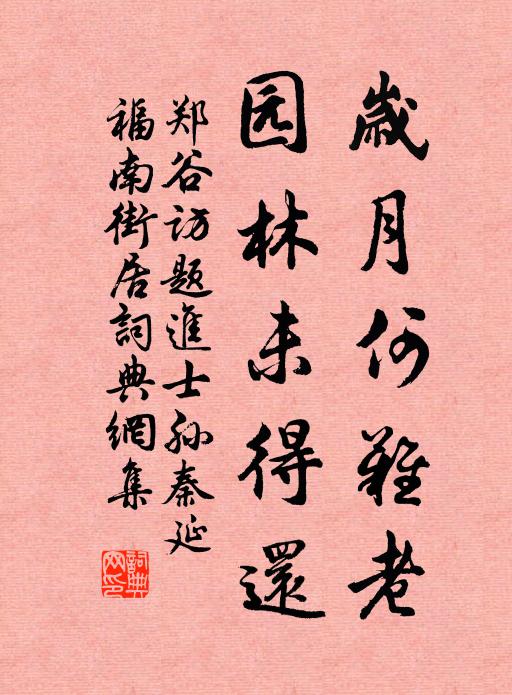 歲月何難老
园林未得還
郑谷访题進士孙秦延
福南街居詞典網集
詞典网印